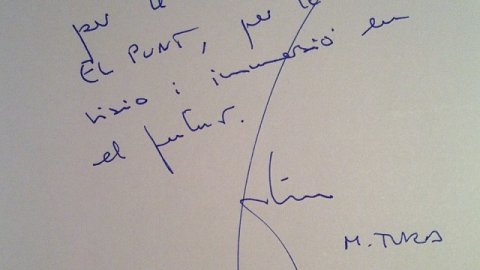 per la
EL PUNT, per la
visió i immersió en
el futur.
M. TURA